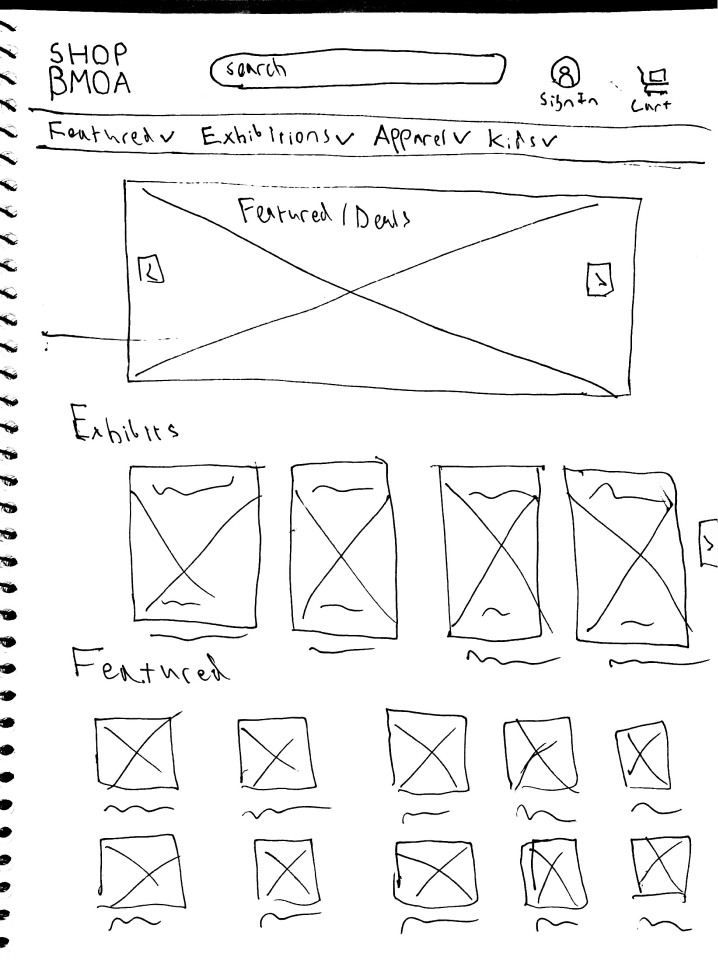 SHOP
BMOA
search
SignIn
Cart
Featured Exhibitions Apparel Kids
Featured / Deals
Exhibits
Featured